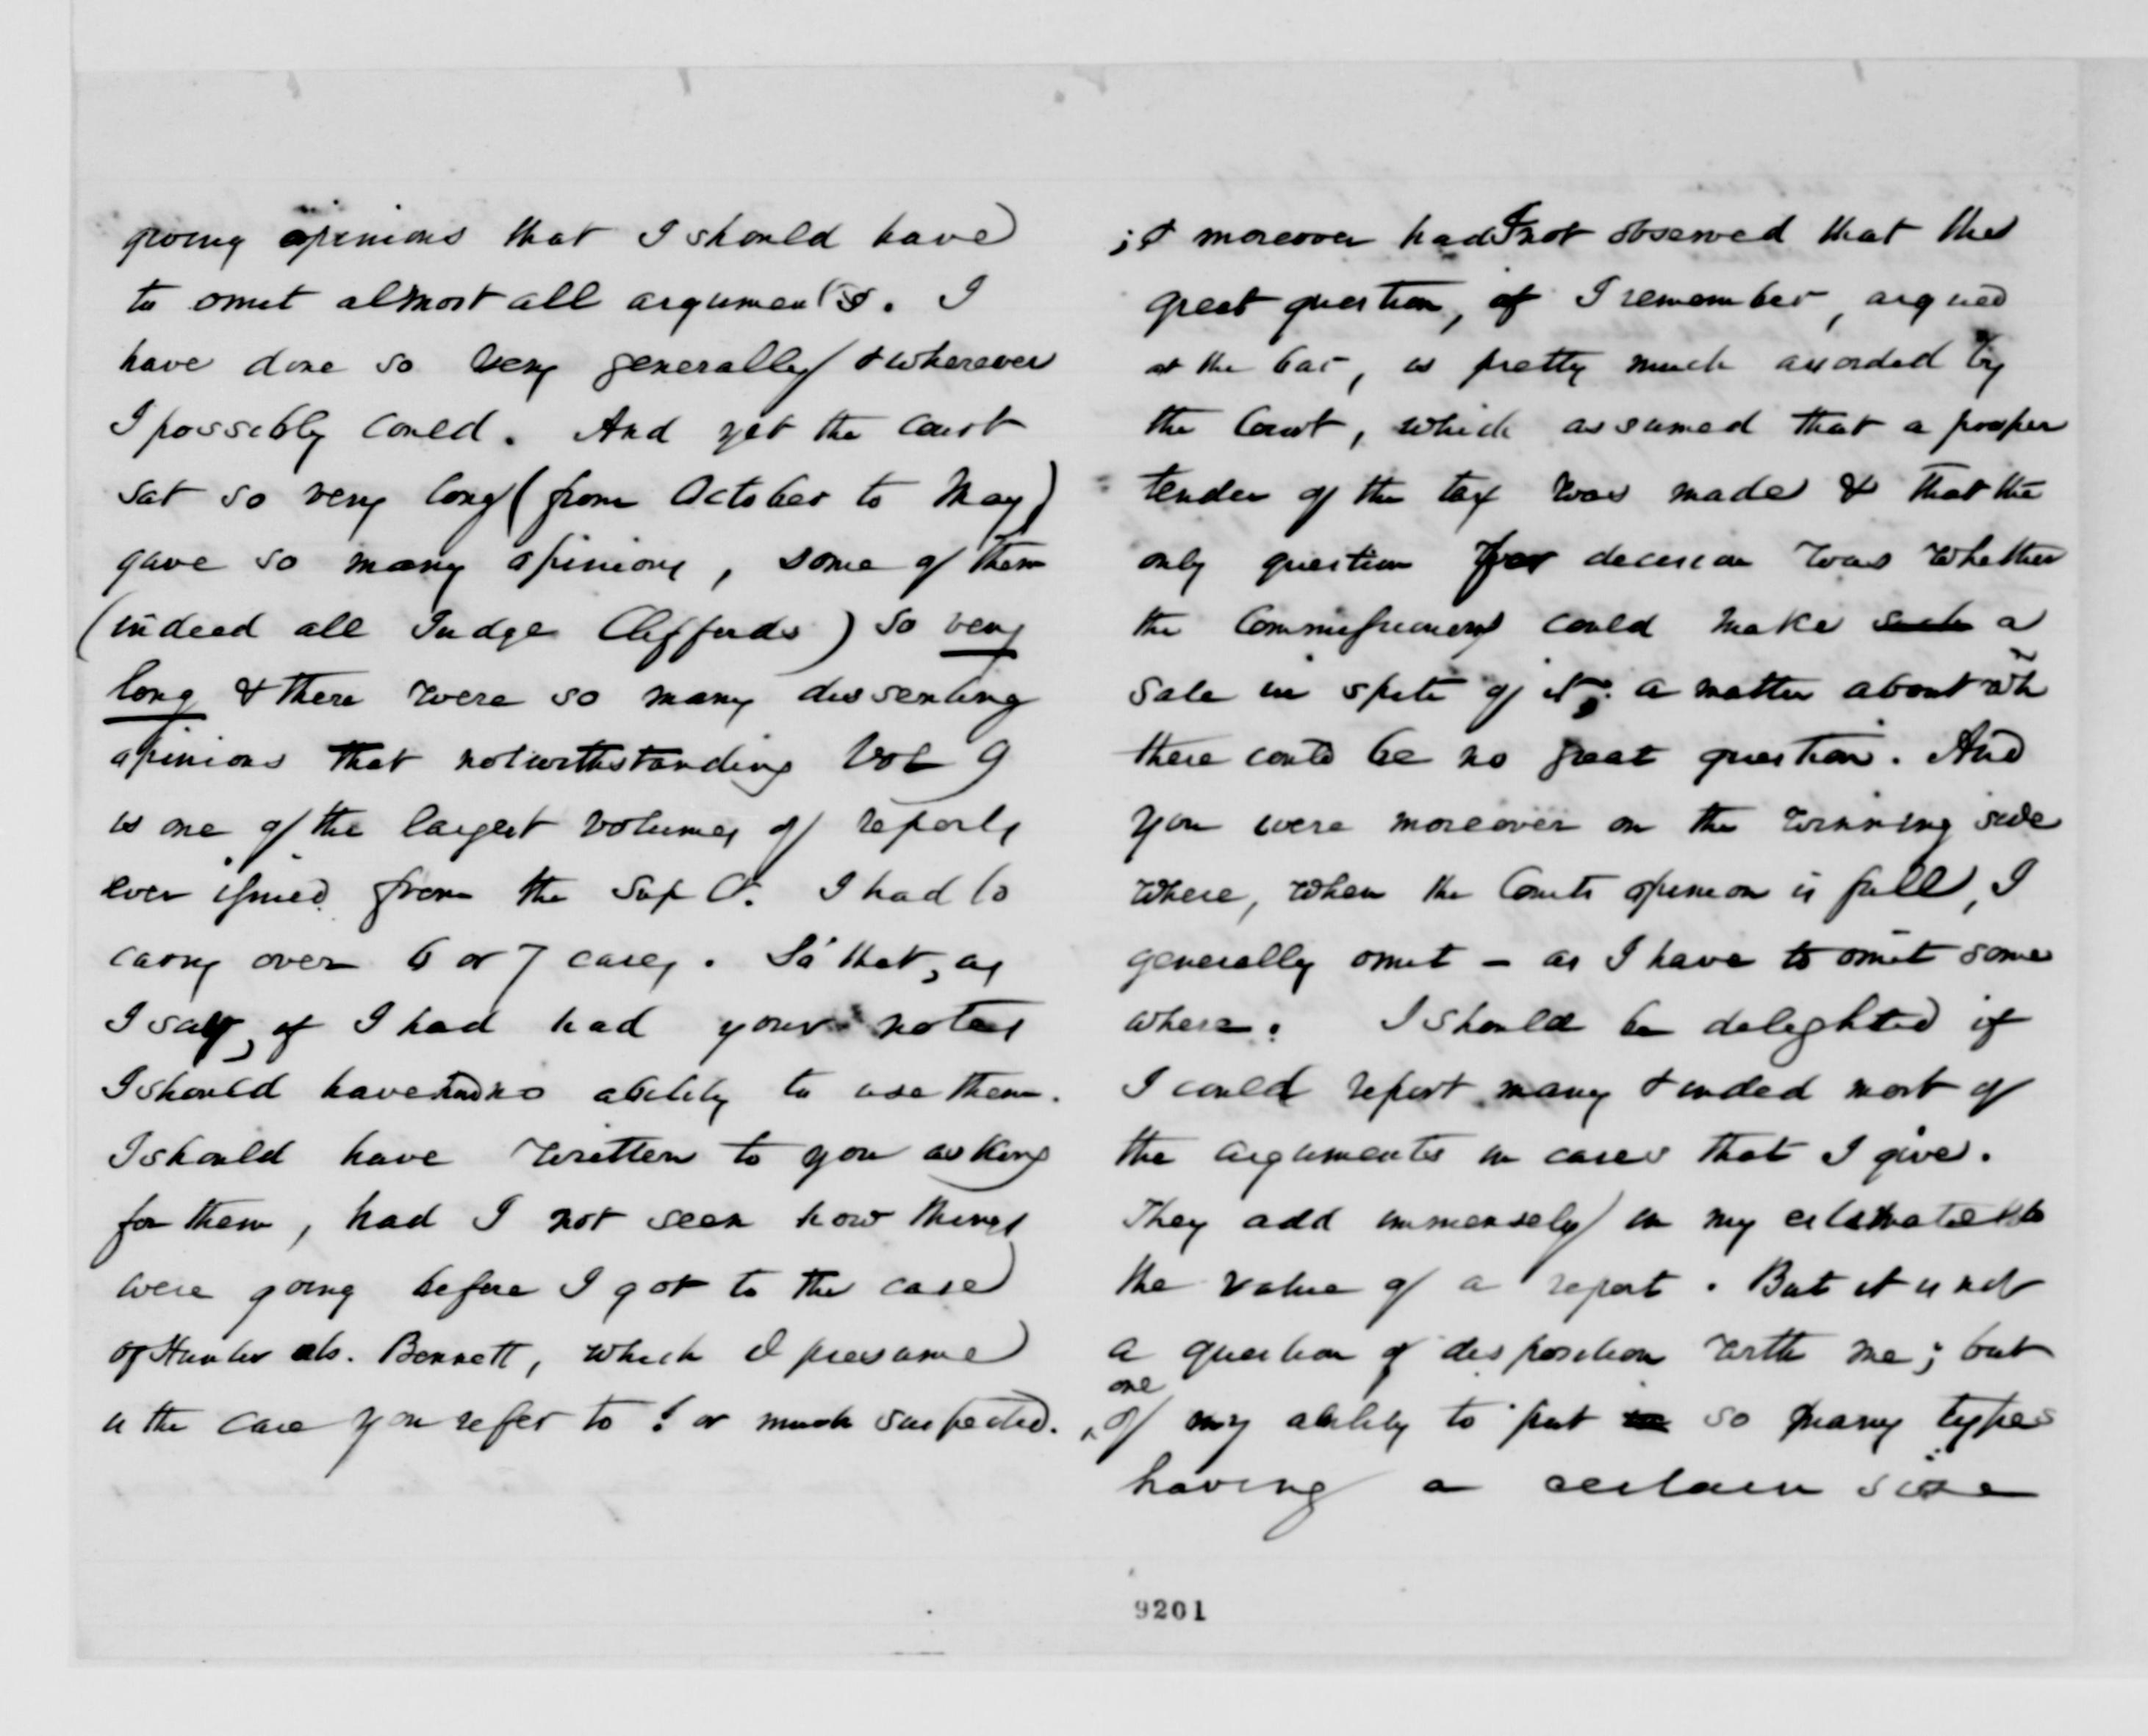 giving opinions that I should have
to omit almost all arguments. I
have done so very generally & wherever
I possibly could. And yet the court
sat so very long (from October to May)
gave so many opinions, some of them
(indeed all Judge Cliffords) so very
long & there were so many dissenting
opinions that notwithstanding Vol 9
is one of the largest volumes of reports
ever issued from the Sup Ct. I had to
carry over 6 or 7 cases. So that, as
I say, if I had had your notes
I should have had no ability to use them.
I should have written to you asking
for them, had I not seen how things
were going before I got to the case
of Hunter vs. Bennett, which I presume
is the case you refer to! or much suspected.
; & moreover had I not observed that the
great question, if I remember, argued
at the bar, is pretty much avoided by
the Court, which assumed that a proper
tender of the tax was made & that the
only question for decision was whether
the Commissioners could make such a
sale in spite of it; a matter about wh
there could be no great question. And
you were moreover on the winning side
where, when the Courts opinion is full, I
generally omit – as I have to omit some
where. I should be delighted if
I could report many & indeed most of
the arguments in cases that I give.
They add immensely in my estimate to
the value of a report. But it is not
a question of disposition with me; but
one
of my ability to put so many types
having a certain size
9201